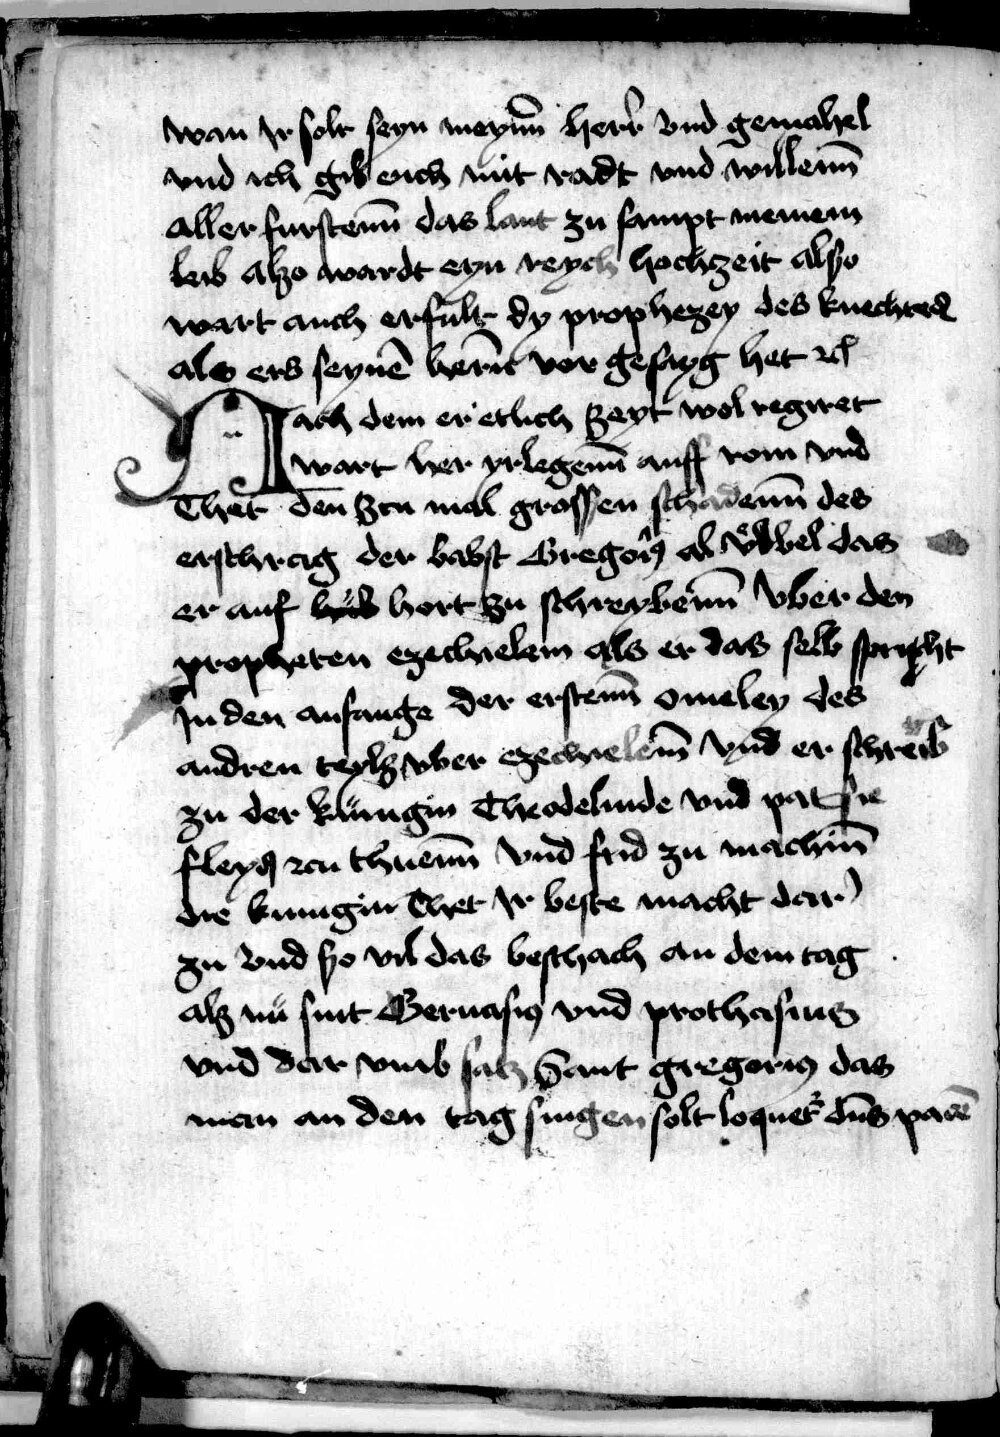 wan Ir solt seyn meyn̄n herr vnd gemahel
vnd ich gib euch mit radt vnd willenn̄
aller furstenn̄ das lant zu sampt meinem
leib also wardt eyn reych hochzeit also
wart auch erfult dy prophezey des knechtes
als ers seynē herñ vor gesayg het ꝛc
Nach dem er etlich Zeyt wol regiret
wart her yrlegenn̄ auff rom vnd
Thet den̄ Zcu mal grossen schadenn̄ des
erschrag der babst Gregoriꝰ al vbbel das
er auf hort zu schreybenn̄ vber den
propheten ezechielem als er das selb spricht
In den anfange der erstenn̄ omeley des
andren teylß vber ezechielem̄ vnd er schreib
zu der kungin Theodelinde vnd pat sie
fleyß zcu thuenn̄ vnd frid zu machin̄
die kunigin Thet Ir beste macht dar
zu vnd so vil das beschach an dem tag
alz nu sint Geruasiꝰ vnd prothasius
vnd dar vmb satz Sant gregoriꝰ das
man an den tag singen solt loquet᷑ dn̄s pacē